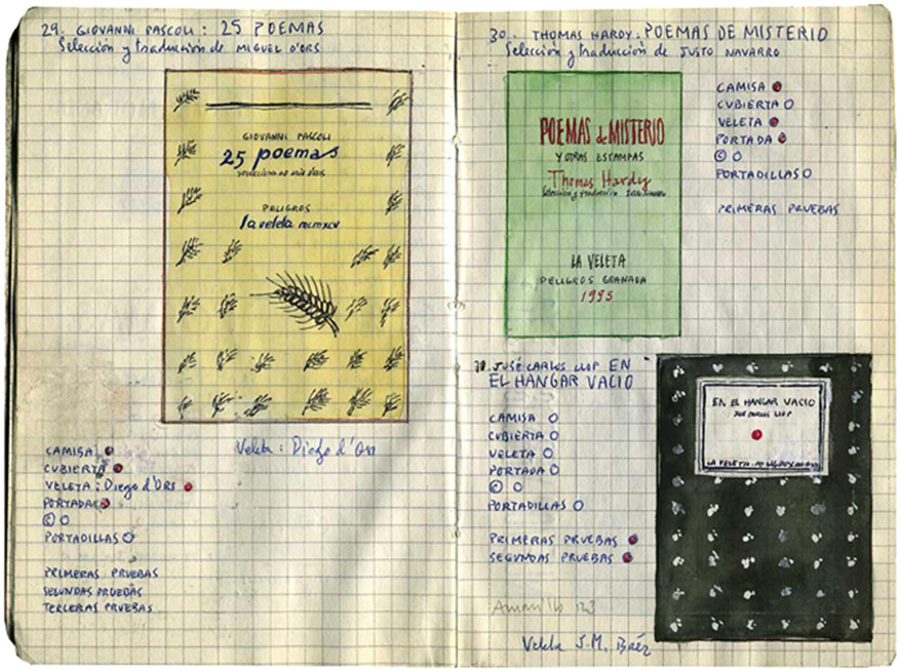 29. GIOVANNI PASCOLI: 25 POEMAS
Selección y traducción de MIGUEL D'ORS
GIOVANNI PASCOLI
25 poemas
PELIGROS
la veleta MCMXCV
Veleta: Diego d'Ors
CAMISA
CUBIERTA
VELETA: Diego d'ORS
PORTADA
© O
PORTADILLAS O
PRIMERAS PRUEBAS
SEGUNDAS PRUEBAS
TERCERAS PRUEBAS
30. THOMAS HARDY: POEMAS DE MISTERIO
Selección y traducción de JUSTO NAVARRO
POEMAS de MISTERIO
Y OTRAS ESTAMPAS
Thomas Hardy
Selección y traducción
LA VELETA
PELIGROS GRANADA
1995
CAMISA
CUBIERTA O
VELETA
PORTADA
© O
PORTADILLAS O
PRIMERAS PRUEBAS
JOSÉ CARLOS LLOP EN
EL HANGAR VACIO
CAMISA O
CUBIERTA O
VELETA O
PORTADA O
© O
PORTADILLAS O
PRIMERAS PRUEBAS
SEGUNDAS PRUEBAS
Amarillo 123
Veleta J.M. Báez
EN EL HANGAR VACIO
JOSE CARLOS LLOP
LA VELETA